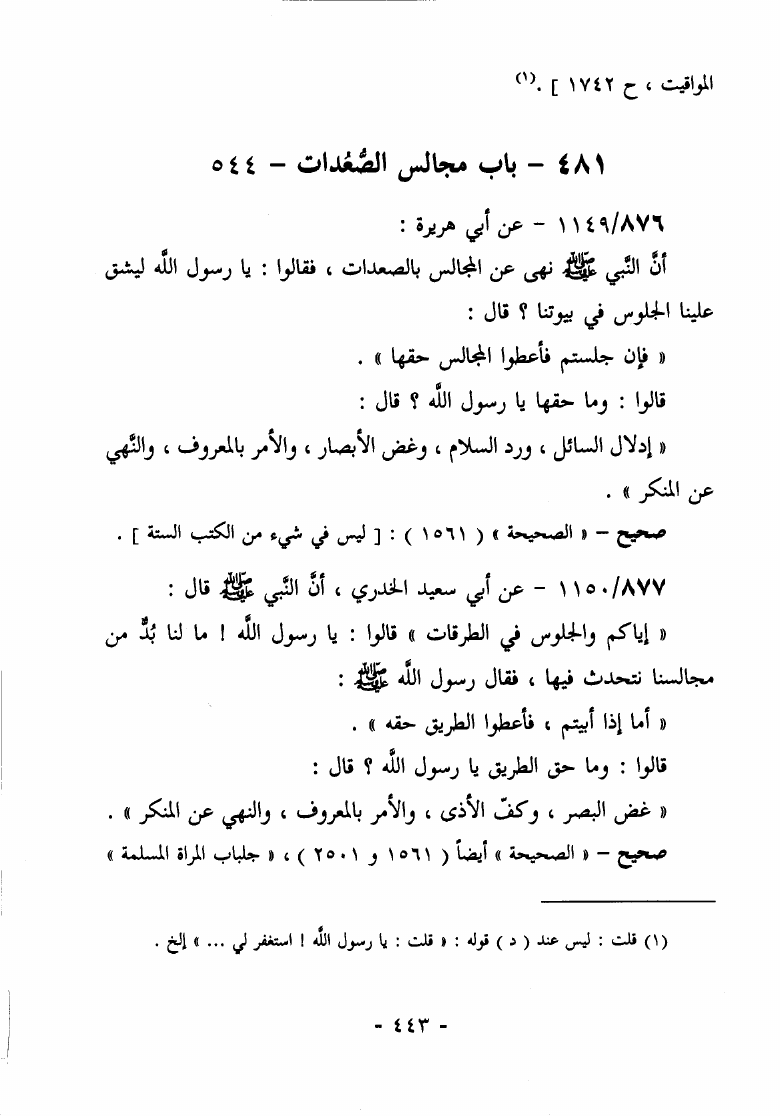 المواقيت ، ح ١٧٤٢ ] . (١)
٤٨١ – باب مجالس الصُّعُدات – ٥٤٤
١١٤٩/٨٧٦ – عن أبي هريرة :
أنَّ النَّبي ﷺ نهى عن المجالس بالصعدات ، فقالوا : يا رسول الله ليشق
علينا الجلوس في بيوتنا ؟ قال :
« فإن جلستم فأعطوا المجالس حقها » .
قالوا : وما حقها يا رسول الله ؟ قال :
« إدلال السائل ، ورد السلام ، وغض الأبصار ، والأمر بالمعروف ، والنَّهي
عن المنكر » .
صحيح – « الصحيحة » ( ١٥٦١ ) : [ ليس في شيء من الكتب الستة ] .
١١٥٠/٨٧٧ – عن أبي سعيد الخدري ، أنَّ النَّبي ﷺ قال :
« إياكم والجلوس في الطرقات » قالوا : يا رسول الله ! ما لنا بُدٌّ من
مجالسنا نتحدث فيها ، فقال رسول الله ﷺ :
« أما إذا أبيتم ، فأعطوا الطريق حقه » .
قالوا : وما حق الطريق يا رسول الله ؟ قال :
« غض البصر ، وكفّ الأذى ، والأمر بالمعروف ، والنهي عن المنكر » .
صحيح – « الصحيحة » أيضاً ( ١٥٦١ و ٢٥٠١ ) ، « جلباب المراة المسلمة »
(١) قلت : ليس عند ( د ) قوله : « قلت : يا رسول الله ! استغفر لي ... » إلخ .
- ٤٤٣ -